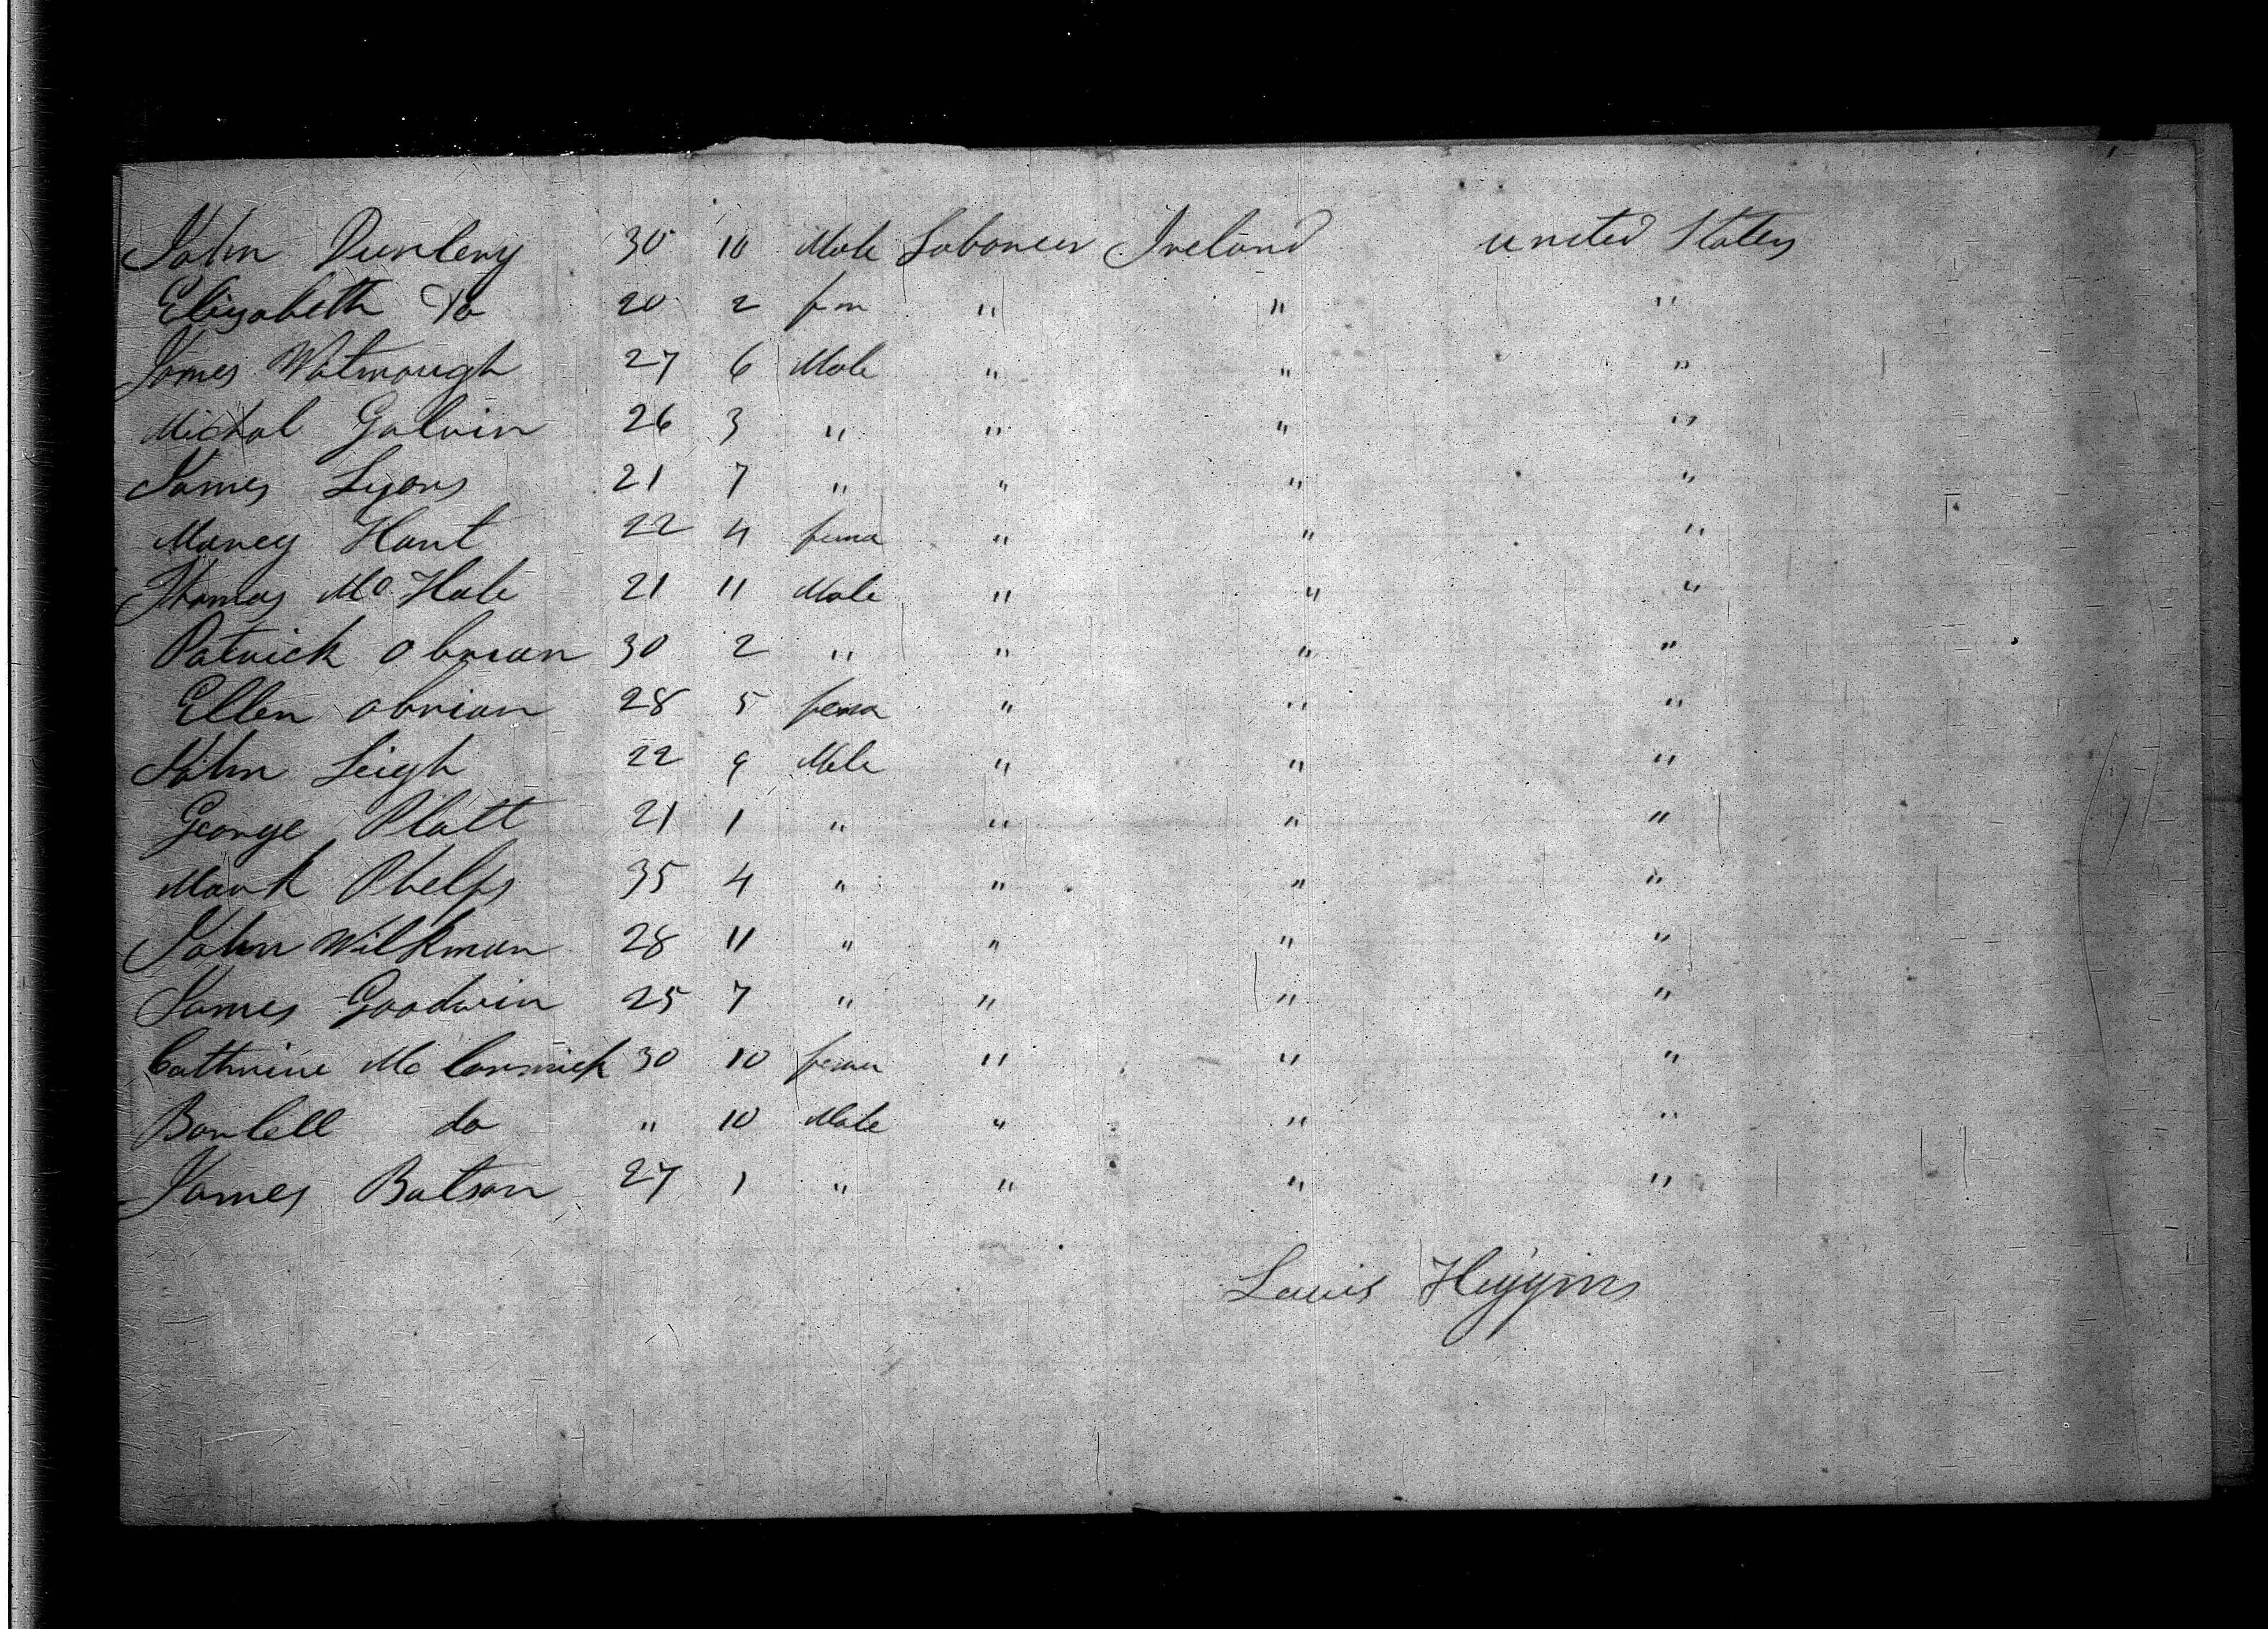 John Dunleny 30 10 Male Laborer Ireland united States
Elizabeth Do 20 2 fem " " "
James Watmough 27 6 Male " " "
Michal Galvin 26 3 " " " "
James Lyons 21 7 " " " "
Marey Hant 22 4 fema " " "
Thomas Mc Hale 21 11 Male " " "
Patrick obrian 30 2 " " " "
Ellen obrian 28 5 fema " " "
John Leigh 22 9 Male " " "
George Platt 21 1 " " " "
Mark Phelps 35 4 " " " "
John Wilkman 28 11 " " " "
James Goodwin 25 7 " " " "
Cathrine Mc Cormick 30 10 fema " " "
do " 10 Male " " "
James Batson 27 1 " " " "
Louis Higgins